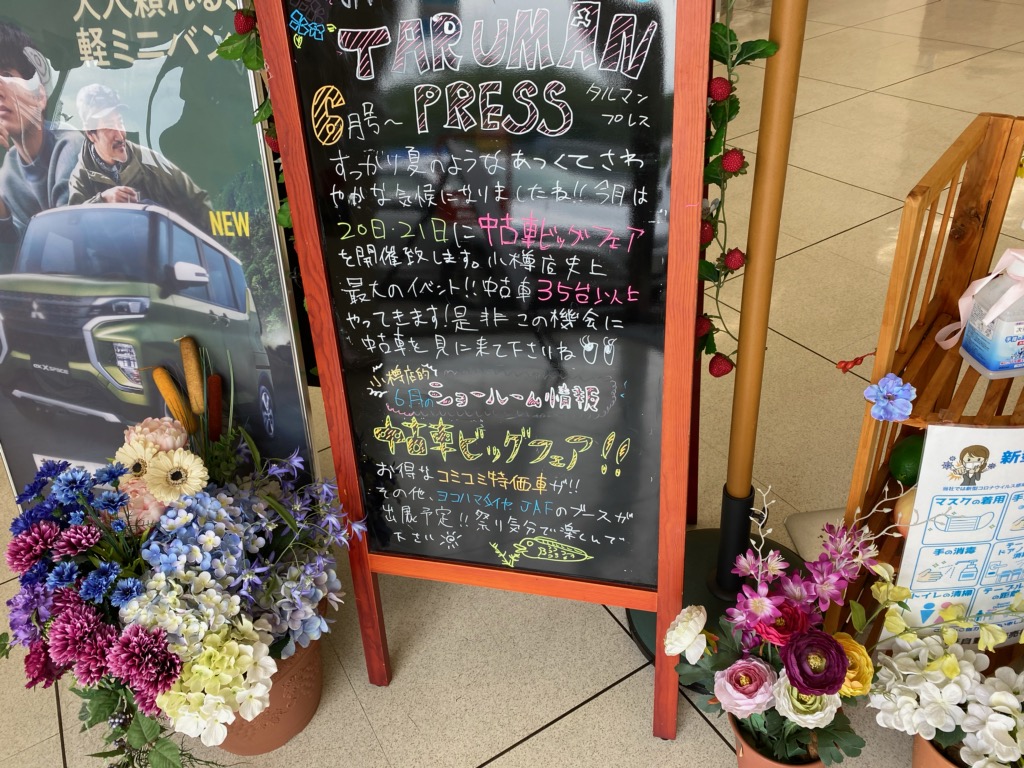 軽ミニバン
NEW
TARUMAN
PRESS
タルマン
プレス
6月号〜
すっかり夏のようなあつくてさわ
やかな気候になりましたね!!今月は
20日・21日に中古車ビッグフェア
を開催致します。小樽店史上
最大のイベント!!中古車35台以上
やってきます!是非この機会に
中古車を見に来て下さいね
小樽店的
6月のショールーム情報
中古車ビッグフェア!!
お得なコミコミ特価車が!!
その他、ヨコハマタイヤ JAFのブースが
出展予定!!祭り気分で楽しんで
下さい
マスクの着用
手の消毒
トイレの清掃